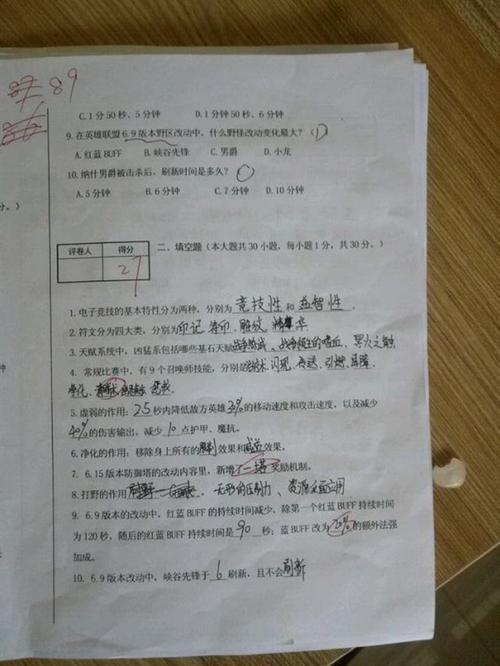 89
C.1分50秒、5分钟 D.1分50秒、6分钟
9.在英雄联盟6.9版本野区改动中，什么野怪改动变化最大？（D）
A.红蓝BUFF B.峡谷先锋 C.男爵 D.小龙
10.纳什男爵被击杀后，刷新时间是多久？（C）
A.5分钟 B.6分钟 C.7分钟 D.10分钟
分。）
评卷人 得分
27
二、填空题（本大题共30小题，每小题1分，共30分。）
1.电子竞技的基本特性分为两种，分别为竞技性和益智性.
2.符文分为四大类，分别为印记、符印、雕纹、精华
3.天赋系统中，凶猛系包括哪些基石天赋战争热诚、战争领主的嗜血、冥火之触
4.常规比赛中，有9个召唤师技能，分别是治疗术、闪现、传送、引燃、屏障、
净化、
5.虚弱的作用：2.5秒内降低敌方英雄30%的移动速度和攻击速度，以及减少
40%的伤害输出，减少10点护甲、魔抗。
6.净化的作用：移除身上所有的限制效果和减益效果。
7.6.15版本防御塔的改动内容里，新增了一塔奖励机制。
8.打野的作用 无形的压制力、资源
9.6.9版本的改动中，红蓝BUFF的持续时间减少，除第一个红蓝BUFF持续时间
为120秒，随后的红蓝BUFF持续时间是90秒；蓝BUFF改为的额外法强
加成。
10.6.9版本改动中，峡谷先锋于6刷新，且不会刷新